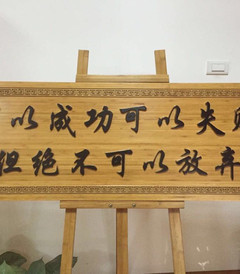 以成功可以失
但绝不可以放弃